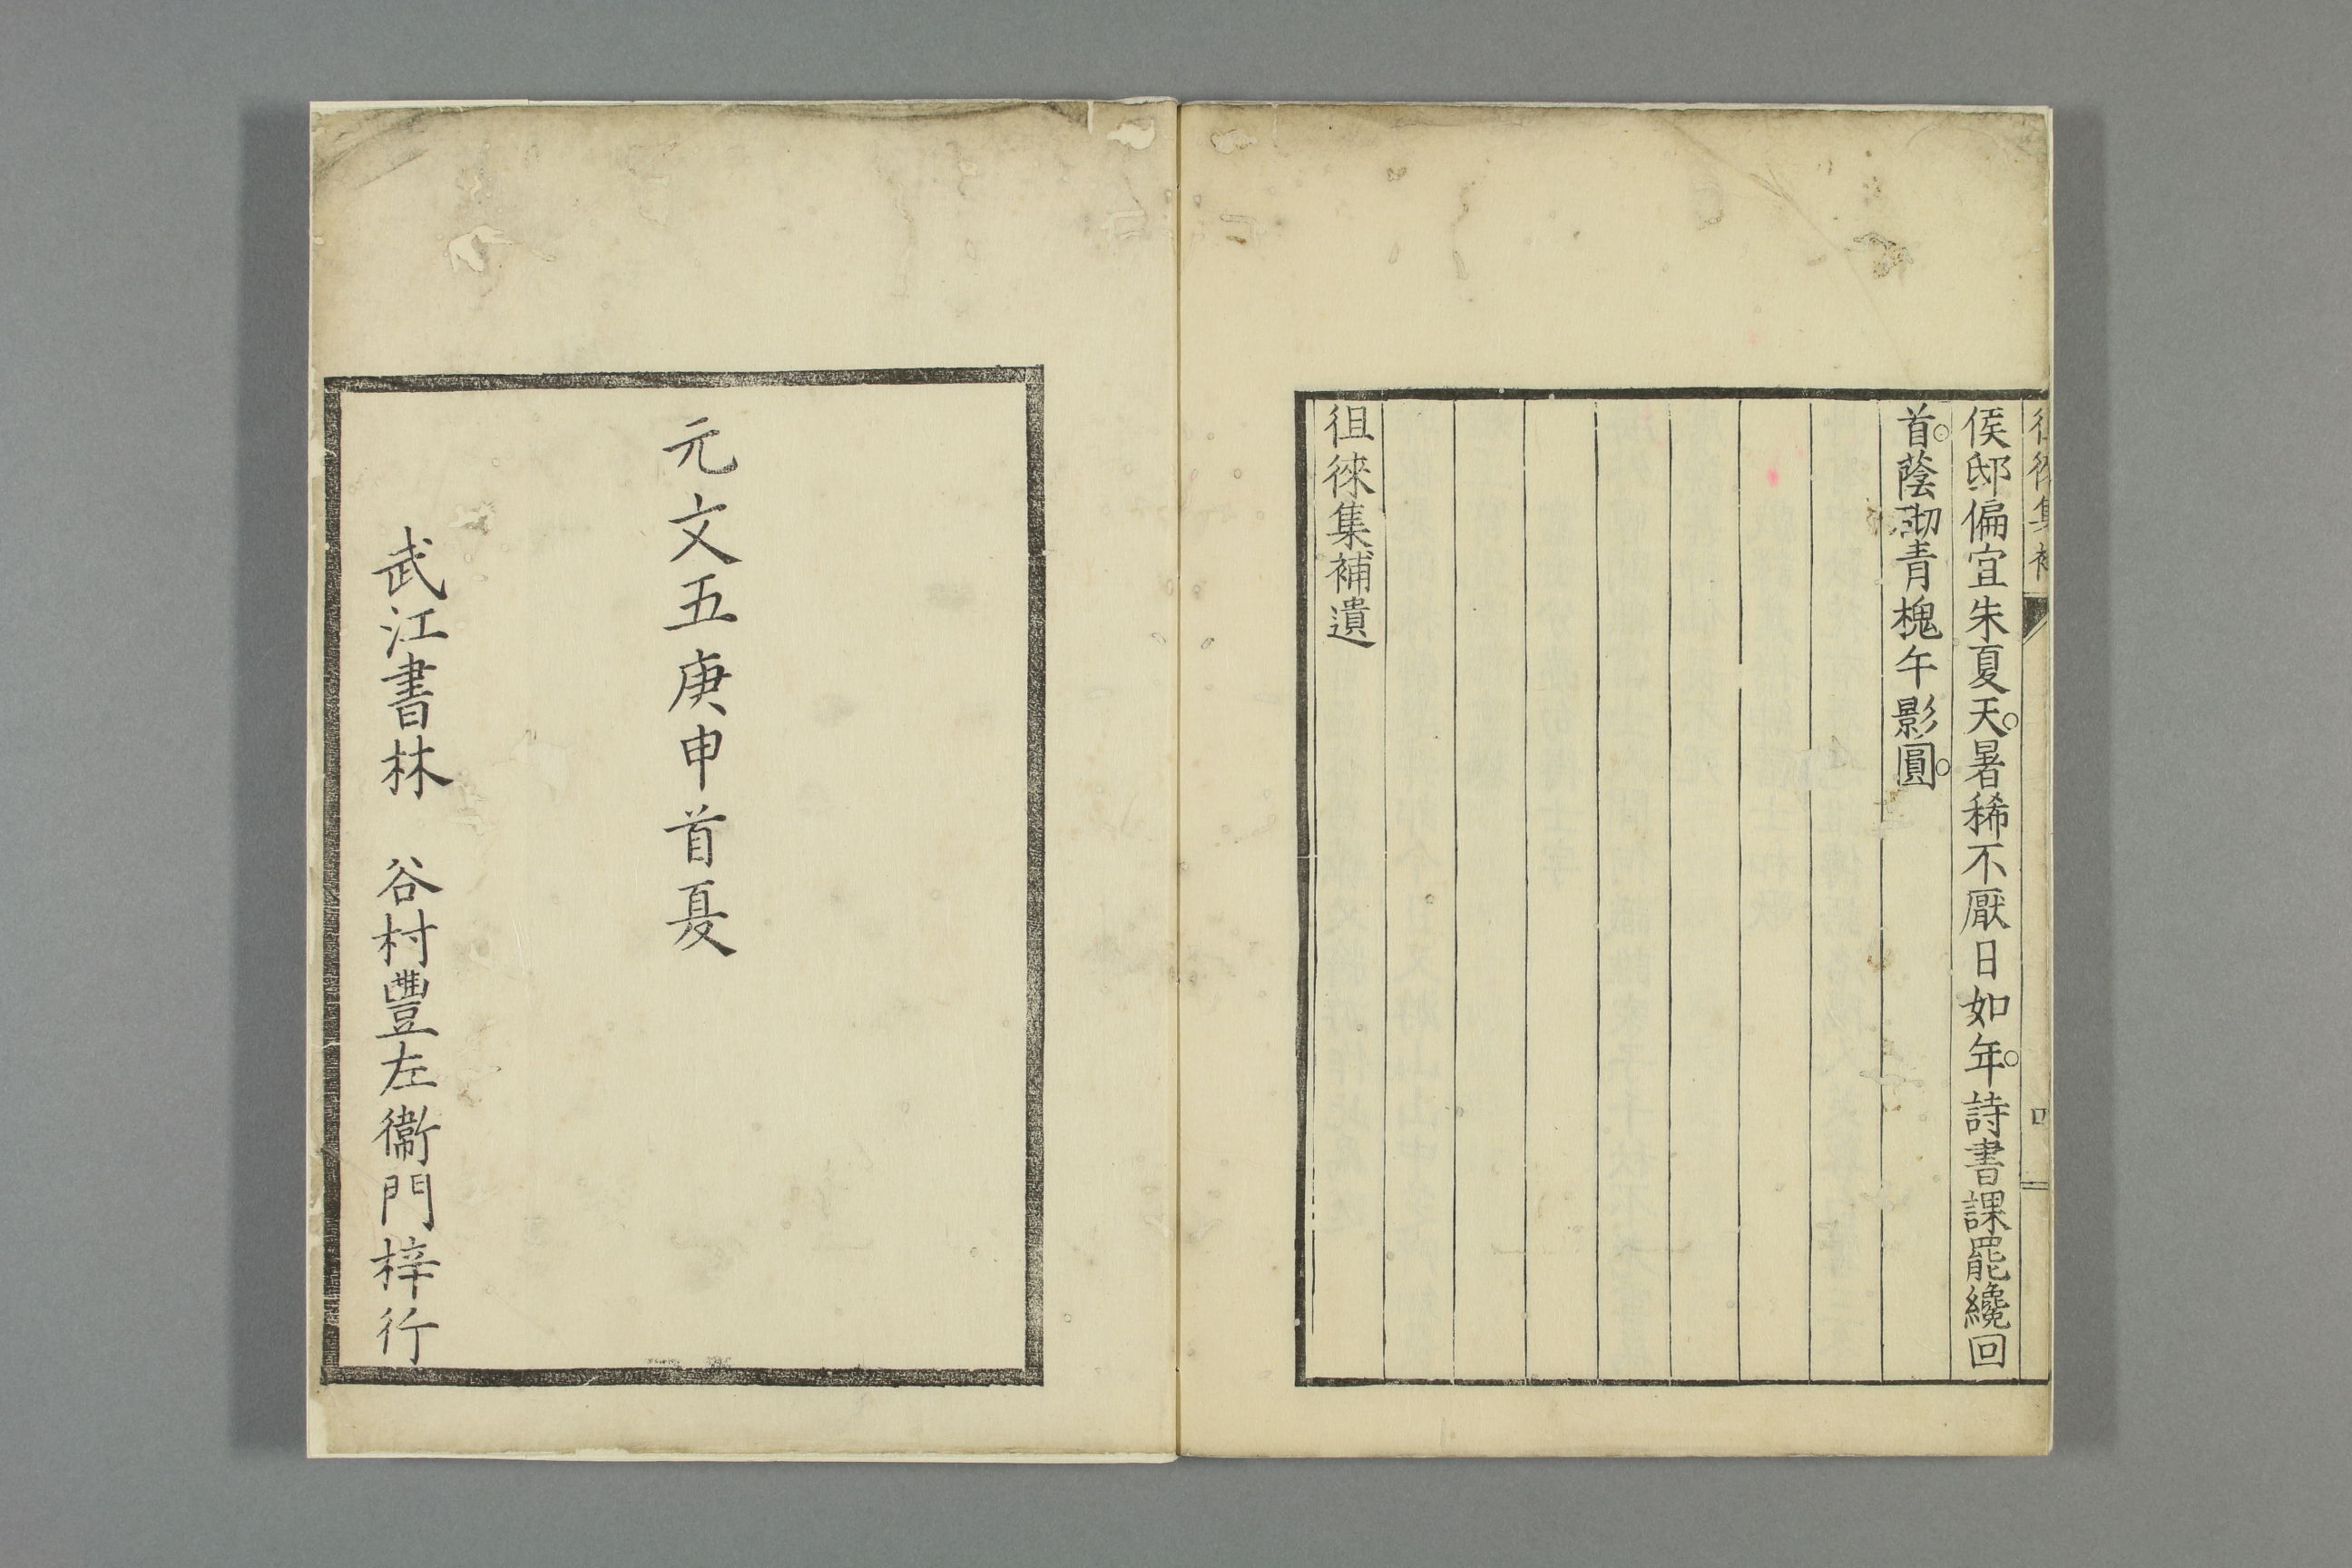 侯邸偏宜朱夏天。暑稀不厭日如年。詩書課罷纔回
首。蔭砌青槐午影圓。
徂徠集補遺
元文五庚申首夏
武江書林　谷村豐左衞門梓行